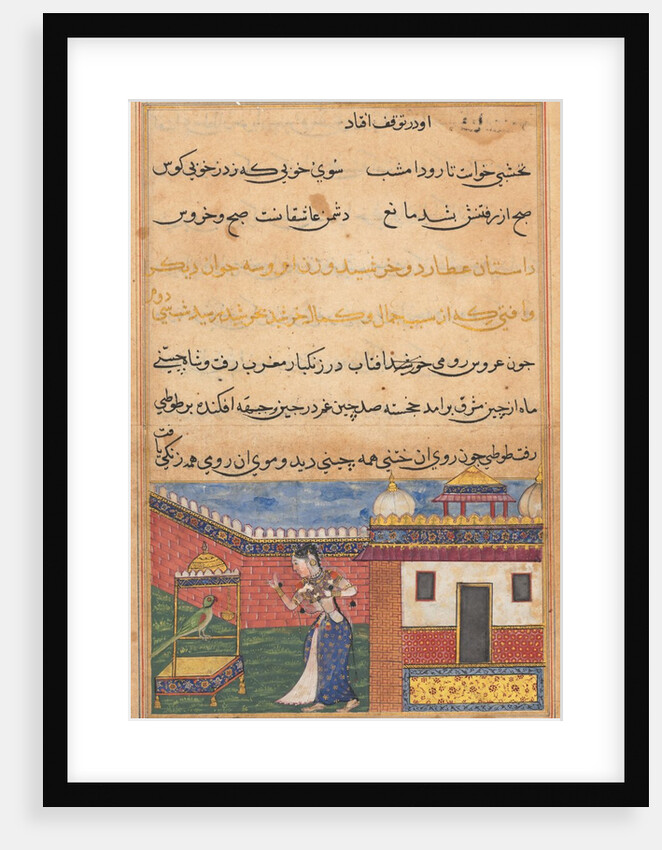 او در توقف افتاد
نخشبی خواست تا رود امشب سوی خوبی که زد ز خوبی کوس
صبح از رفتنش بشد مانع دشمن عاشقانست صبح و خروس
داستان عطارد و خرشید و زن او و سه جوان دیکر
وافتی که از سبب جمال و کمال خرشید بخرشید رسید شب سی دوم
چون عروس رومی خورشید افتاب در زنکبار مغرب رفت و شاه چینی
ماه از چین مشرق برامد خجسته صد چین غم در جبین و حدقه افکنده بر طوطی
رفت طوطی چون روی ان ختنی همه چینی دید و موی ان روی همه زنکی یافت